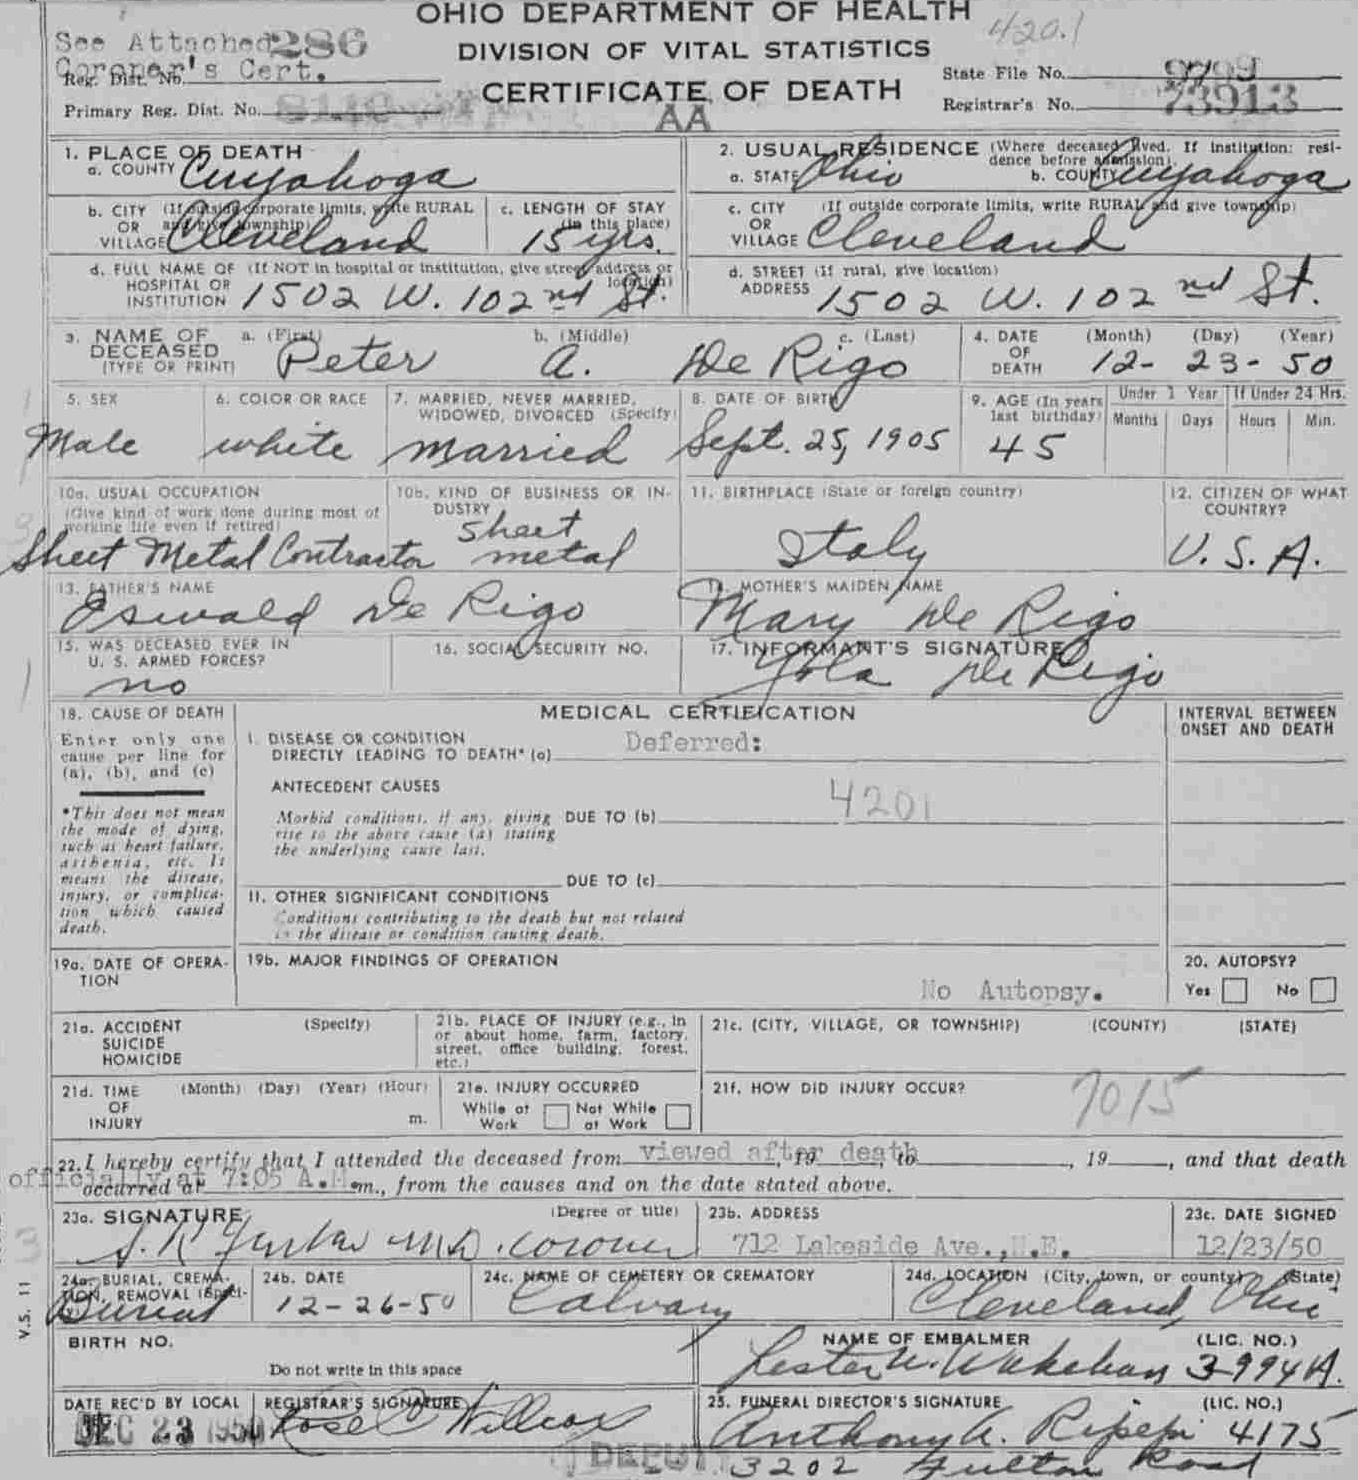 OHIO DEPARTMENT OF HEALTH
420.1
See Attached 286
DIVISION OF VITAL STATISTICS
Coroner's Cert.
Reg. Dist. No.
CERTIFICATE OF DEATH
State File No.
Primary Reg. Dist. No.
AA
Registrar's No. 73913
1. PLACE OF DEATH
a. COUNTY Cuyahoga
2. USUAL RESIDENCE (Where deceased lived. If institution: resi-
dence before admission).
a. STATE Ohio b. COUNTY Cuyahoga
b. CITY (If outside corporate limits, write RURAL
OR and give township)
VILLAGE Cleveland
c. LENGTH OF STAY
(in this place)
15 yrs.
c. CITY (If outside corporate limits, write RURAL and give township)
OR
VILLAGE Cleveland
d. FULL NAME OF (If NOT in hospital or institution, give street address or
HOSPITAL OR location)
INSTITUTION 1502 W. 102nd St.
d. STREET (If rural, give location)
ADDRESS 1502 W. 102nd St.
3. NAME OF a. (First) b. (Middle) c. (Last)
DECEASED
(TYPE OR PRINT) Peter A. De Rigo
4. DATE (Month) (Day) (Year)
OF
DEATH 12- 23- 50
5. SEX
Male
6. COLOR OR RACE
white
7. MARRIED, NEVER MARRIED,
WIDOWED, DIVORCED (Specify)
married
8. DATE OF BIRTH
Sept. 25, 1905
9. AGE (In years
last birthday)
45
Under 1 Year
Months Days
If Under 24 Hrs.
Hours Min.
10a. USUAL OCCUPATION
(Give kind of work done during most of
working life even if retired)
Sheet Metal Contractor
10b. KIND OF BUSINESS OR IN-
DUSTRY
Sheet
metal
11. BIRTHPLACE (State or foreign country)
Italy
12. CITIZEN OF WHAT
COUNTRY?
U. S. A.
13. FATHER'S NAME
Oswald De Rigo
14. MOTHER'S MAIDEN NAME
Mary De Rigo
15. WAS DECEASED EVER IN
U. S. ARMED FORCES?
no
16. SOCIAL SECURITY NO.
17. INFORMANT'S SIGNATURE
Yola De Rigo
18. CAUSE OF DEATH
Enter only one
cause per line for
(a), (b), and (c)
*This does not mean
the mode of dying,
such as heart failure,
asthenia, etc. It
means the disease,
injury, or complica-
tion which caused
death.
MEDICAL CERTIFICATION
I. DISEASE OR CONDITION
DIRECTLY LEADING TO DEATH* (a) Deferred:
ANTECEDENT CAUSES
4201
Morbid conditions, if any, giving DUE TO (b)
rise to the above cause (a) stating
the underlying cause last.
DUE TO (c)
II. OTHER SIGNIFICANT CONDITIONS
Conditions contributing to the death but not related
to the disease or condition causing death.
INTERVAL BETWEEN
ONSET AND DEATH
19a. DATE OF OPERA-
TION
19b. MAJOR FINDINGS OF OPERATION
No Autopsy.
20. AUTOPSY?
Yes No
21a. ACCIDENT (Specify)
SUICIDE
HOMICIDE
21b. PLACE OF INJURY (e.g., in
or about home, farm, factory,
street, office building, forest,
etc.)
21c. (CITY, VILLAGE, OR TOWNSHIP) (COUNTY) (STATE)
21d. TIME (Month) (Day) (Year) (Hour)
OF
INJURY m.
21e. INJURY OCCURRED
While at Work Not While at Work
21f. HOW DID INJURY OCCUR?
7015
22. I hereby certify that I attended the deceased from viewed after death, 19, to, 19, and that death
officially at 7:05 A.M.
occurred at m., from the causes and on the date stated above.
23a. SIGNATURE (Degree or title)
M.D. Coroner
23b. ADDRESS
712 Lakeside Ave., N.E.
23c. DATE SIGNED
12/23/50
24a. BURIAL, CREMA-
TION, REMOVAL (Speci-
Burial
24b. DATE
12-26-50
24c. NAME OF CEMETERY OR CREMATORY
Calvary
24d. LOCATION (City, town, or county) (State)
Cleveland, Ohio
V.S. 11
BIRTH NO.
Do not write in this space
NAME OF EMBALMER (LIC. NO.)
Lester W. Wakeham 3994A.
DATE REC'D BY LOCAL
REG.
DEC 23 1950
REGISTRAR'S SIGNATURE
Rose C Willcox
DEPUTY
25. FUNERAL DIRECTOR'S SIGNATURE (LIC. NO.)
Anthony A. Ripepi 4175
3202 Fulton Road